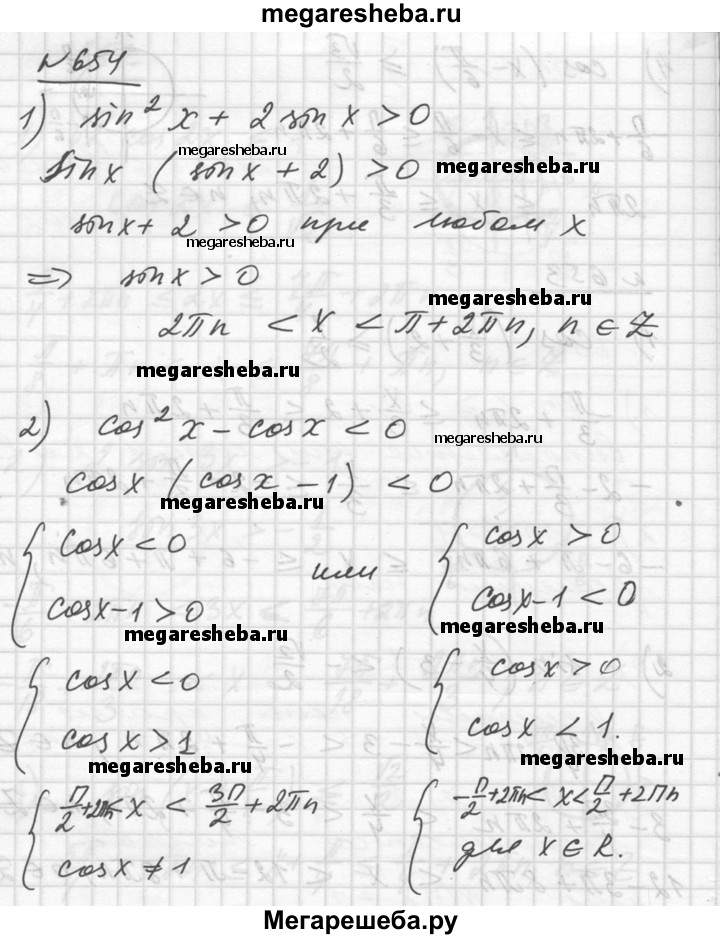 megaresheba.ru
№654
1) sin² x + 2 sin x > 0
megaresheba.ru
sin x (sin x + 2) > 0 megaresheba.ru
sin x + 2 > 0 при любом x
megaresheba.ru
=> sin x > 0
megaresheba.ru
2πn < x < π + 2πn, n ∈ Z
megaresheba.ru
2) cos² x - cos x < 0 megaresheba.ru
cos x (cos x - 1) < 0
megaresheba.ru
{ cos x < 0 или { cos x > 0
cos x - 1 > 0 cos x - 1 < 0
megaresheba.ru megaresheba.ru
{ cos x < 0 { cos x > 0
cos x > 1 cos x < 1.
megaresheba.ru megaresheba.ru
{ π/2 + 2πn < x < 3π/2 + 2πn { -π/2 + 2πn < x < π/2 + 2πn
cos x ≠ 1 для x ∈ R.
Мегарешеба.ру